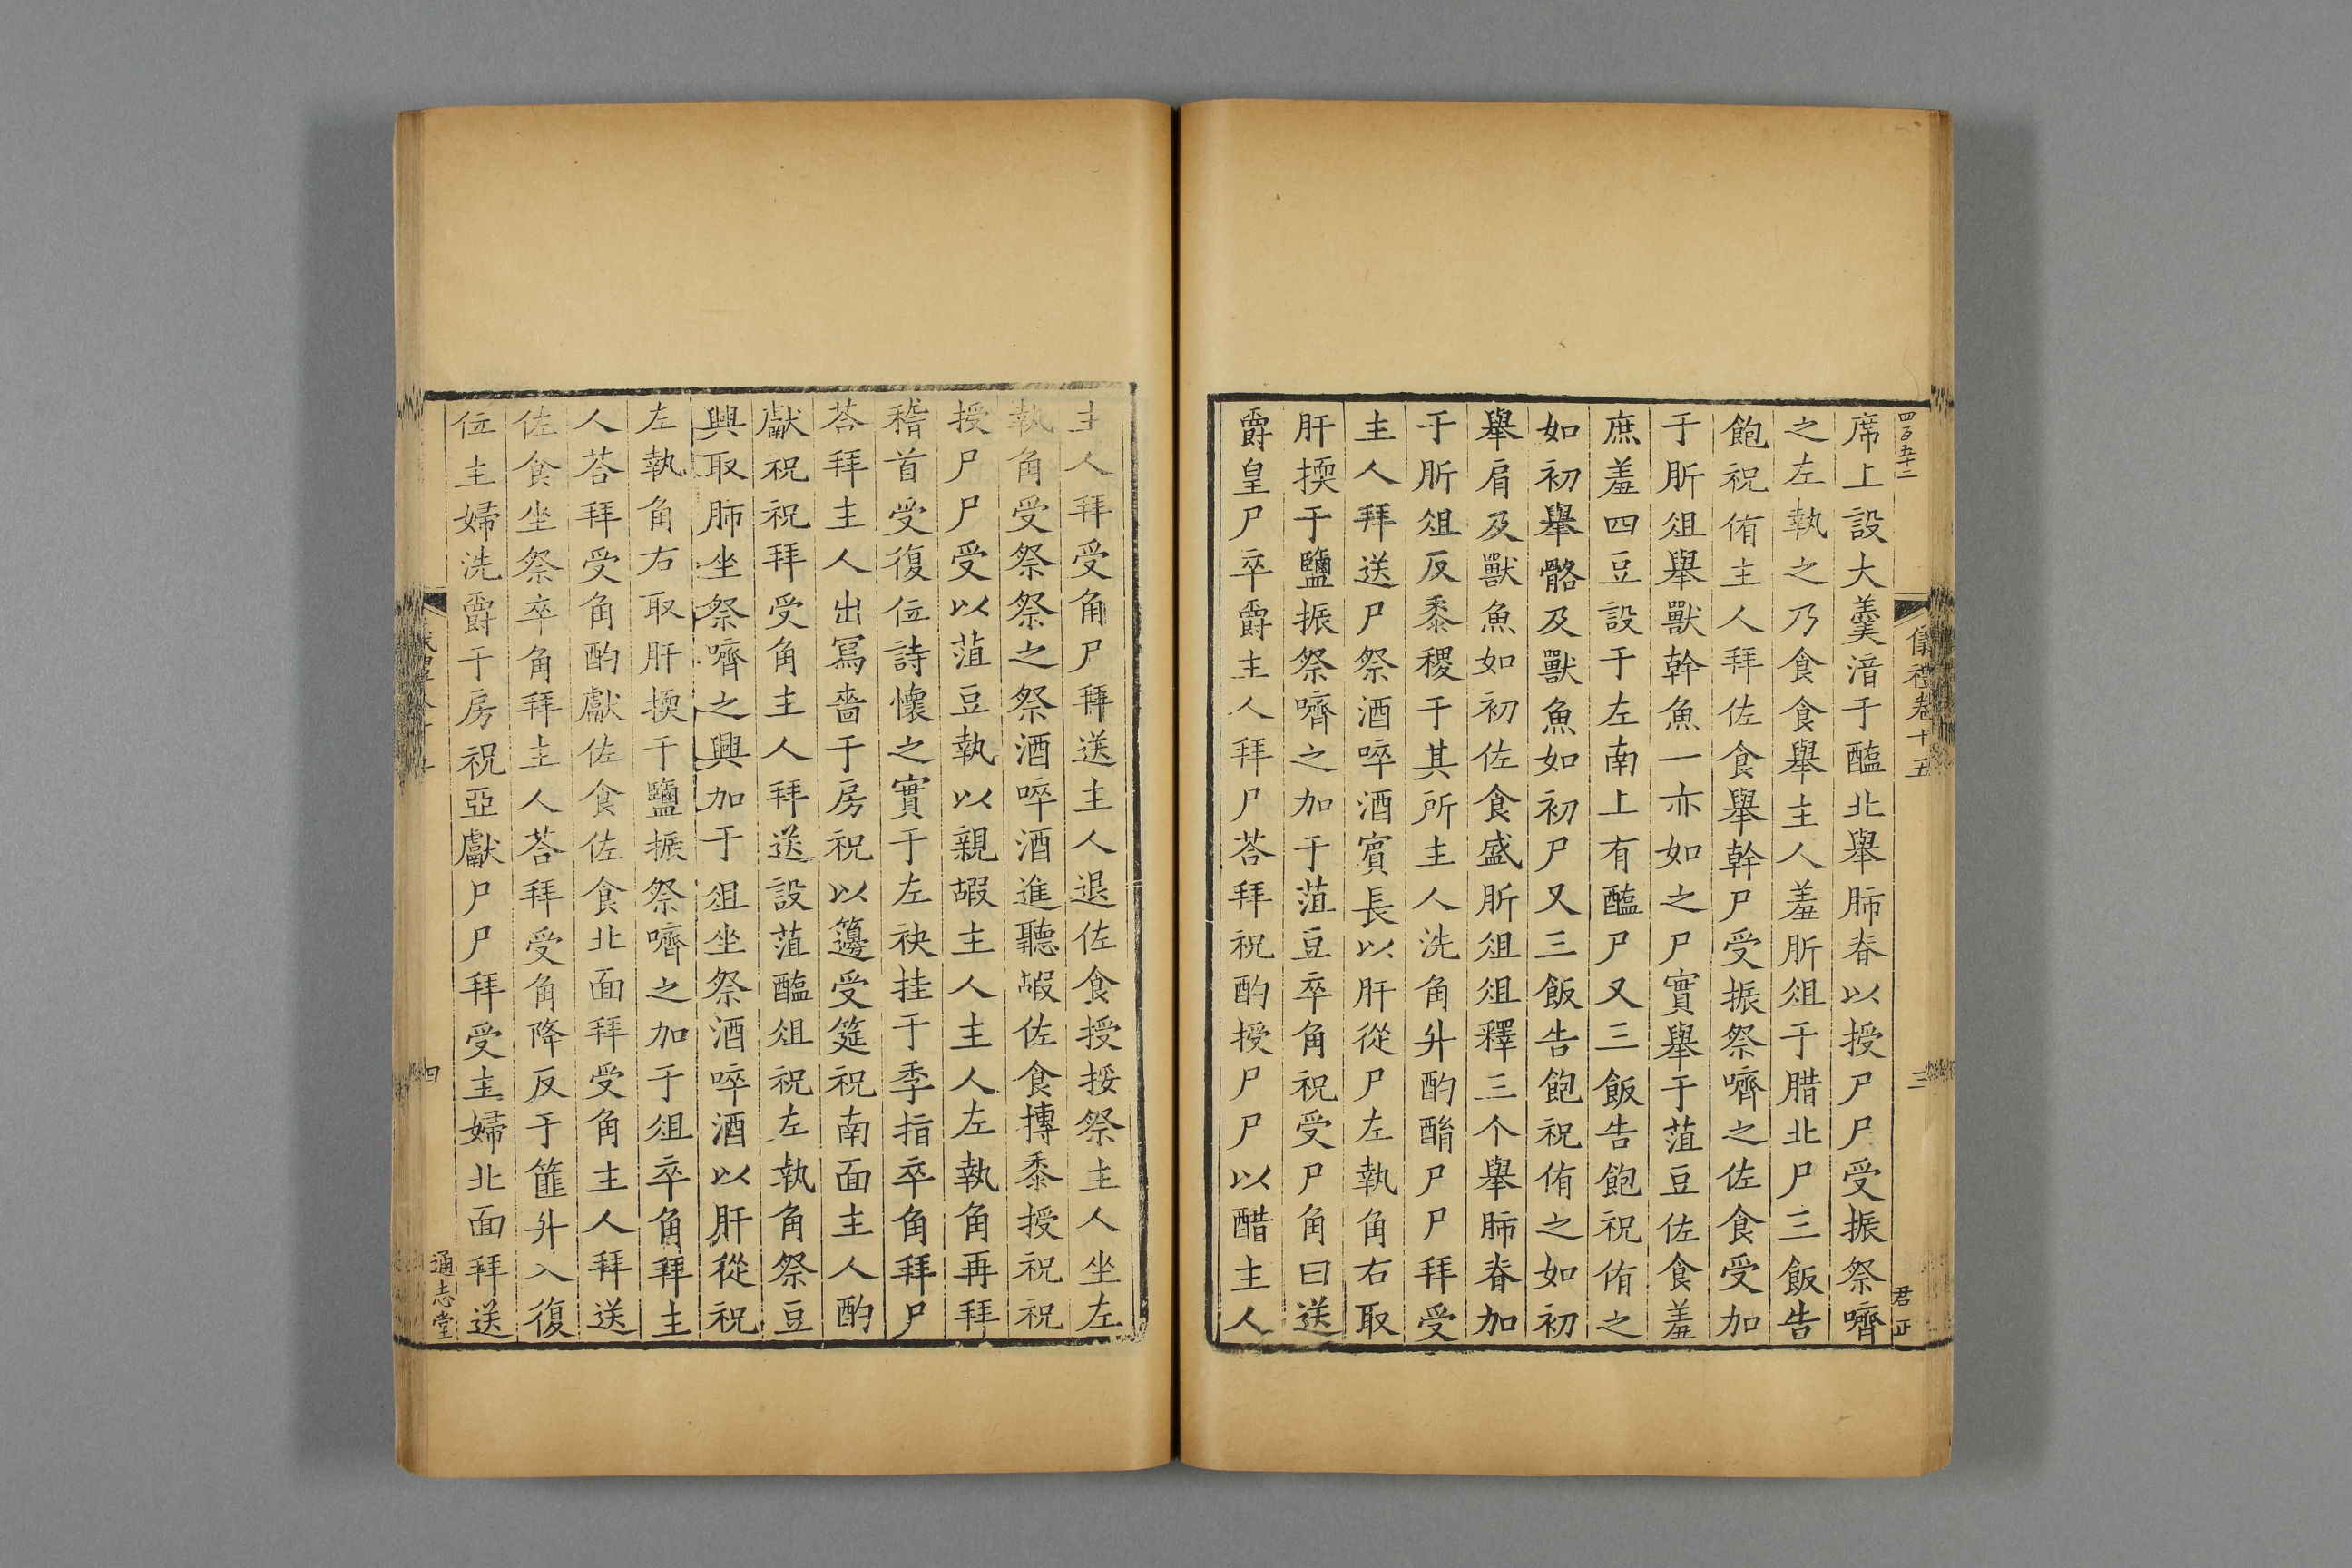 四百五十二
儀禮卷十五
三
君正
席上設大羹湇于醢北舉肺脊以授尸尸受振祭嚌
之左執之乃食食舉主人羞肵俎于腊北尸三飯告
飽祝侑主人拜佐食舉幹尸受振祭嚌之佐食受加
于肵俎舉獸幹魚一亦如之尸實舉于菹豆佐食羞
庶羞四豆設于左南上有醢尸又三飯告飽祝侑之
如初舉骼及獸魚如初尸又三飯告飽祝侑之如初
舉肩及獸魚如初佐食盛肵俎俎釋三个舉肺脊加
于肵俎反黍稷于其所主人洗角升酌酳尸尸拜受
主人拜送尸祭酒啐酒賔長以肝從尸左執角右取
肝擩于鹽振祭嚌之加于菹豆卒角祝受尸角曰送
爵皇尸卒爵主人拜尸荅拜祝酌授尸尸以醋主人
主人拜受角尸拜送主人退佐食授挼祭主人坐左
執角受祭祭之祭酒啐酒進聽嘏佐食摶黍授祝祝
授尸尸受以菹豆執以親嘏主人主人左執角再拜
稽首受復位詩懷之實于左袂挂于季指卒角拜尸
荅拜主人出寫嗇于房祝以籩受筵祝南面主人酌
獻祝祝拜受角主人拜送設菹醢俎祝左執角祭豆
興取肺坐祭嚌之興加于俎坐祭酒啐酒以肝從祝
左執角右取肝擩于鹽振祭嚌之加于俎卒角拜主
人荅拜受角酌獻佐食佐食北面拜受角主人拜送
佐食坐祭卒角拜主人荅拜受角降反于篚升入復
位主婦洗爵于房祝亞獻尸尸拜受主婦北面拜送
四
通志堂